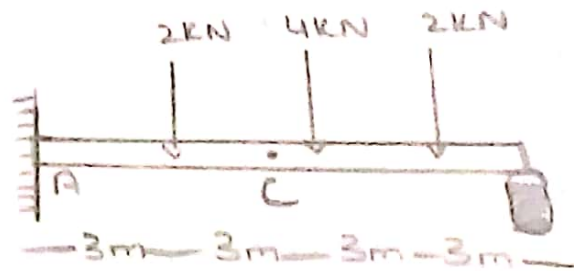 2KN 4KN 2KN
A C
3m 3m 3m 3m